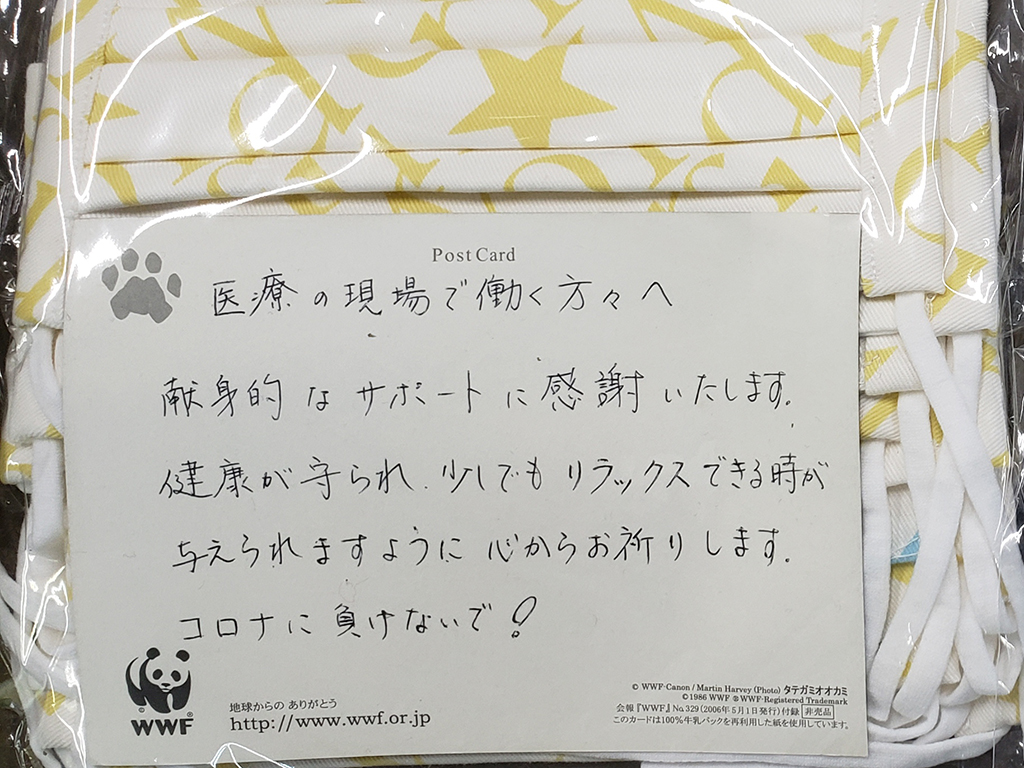 Post Card
医療の現場で働く方々へ
献身的なサポートに感謝いたします。
健康が守られ、少しでもリラックスできる時が
与えられますように心からお祈りします。
コロナに負けないで!
WWF
地球からの ありがとう
http://www.wwf.or.jp
© WWF-Canon / Martin Harvey (Photo) タテガミオオカミ
©1986 WWF ®WWF-Registered Trademark
会報『WWF』No.329(2006年5月1日発行)付録 非売品
このカードは100%牛乳パックを再利用した紙を使用しています。